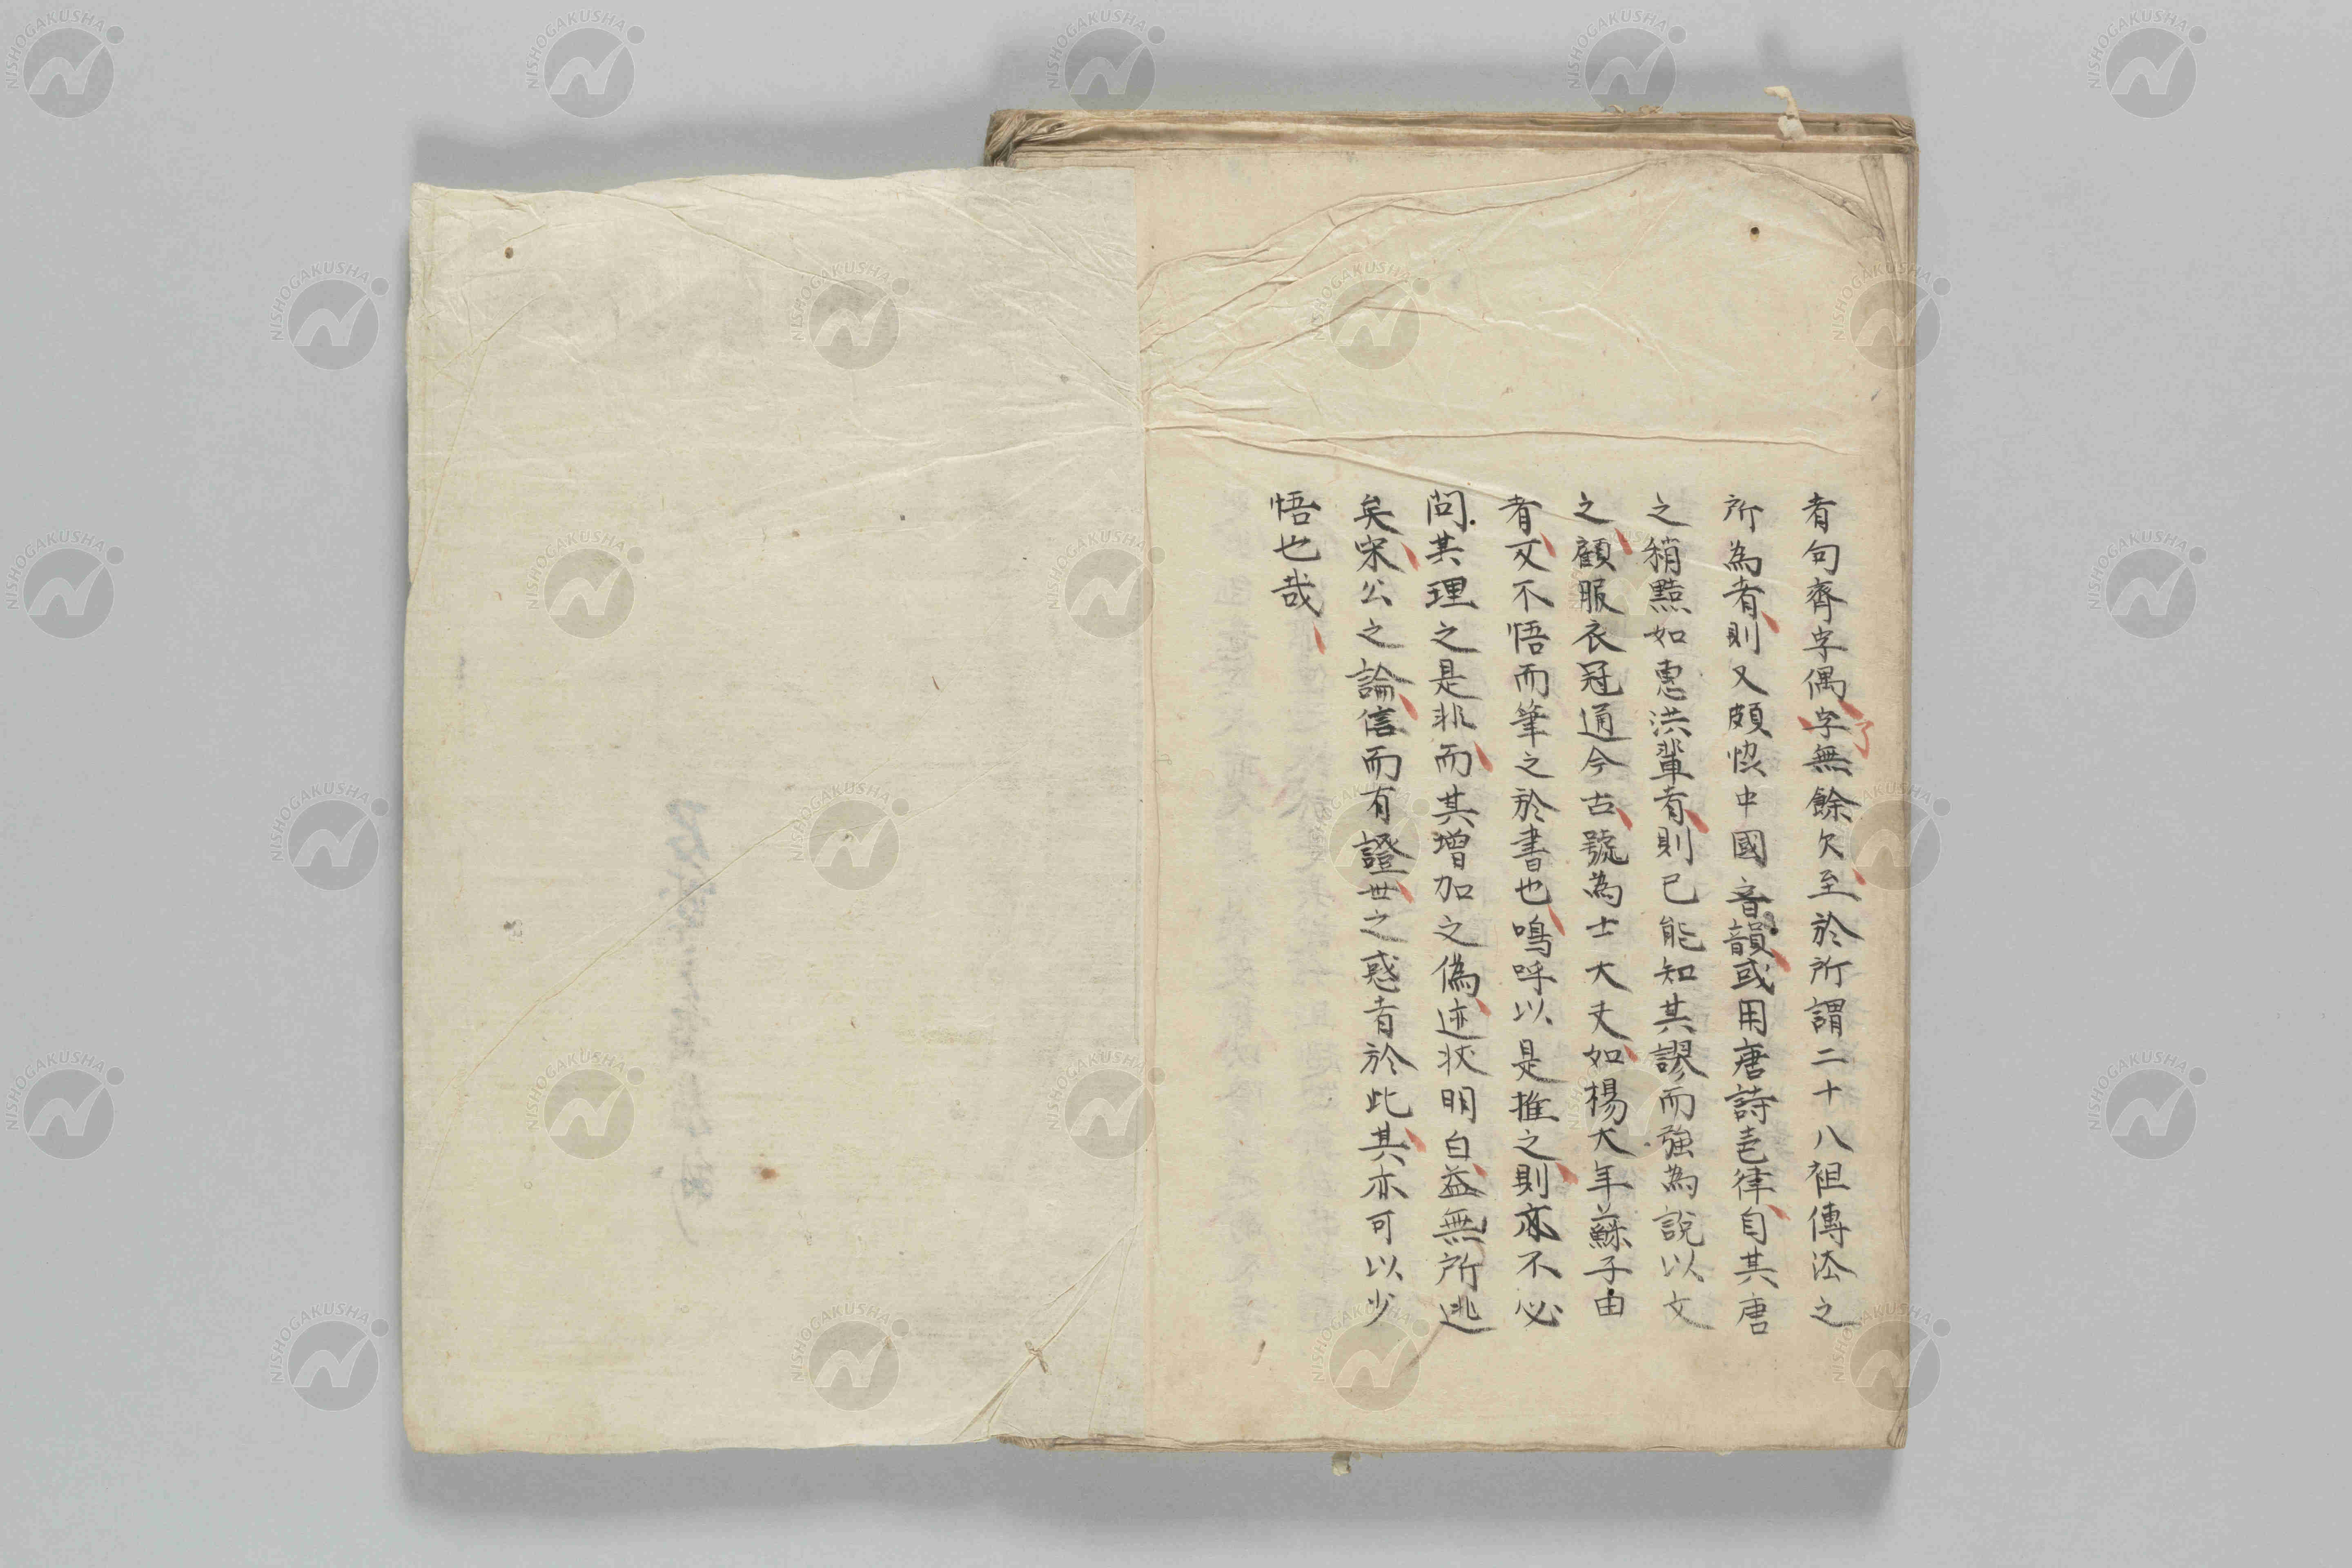 者句齊字偶字無餘欠至於所謂二十八祖傳法之
所為者則又頗恊中國音韻或用唐詩壱律自其唐
之稍黠如惠洪輩者則已能知其謬而強為說以文
之顧服衣冠通今古號為士大夫如楊大年蘇子由
者又不悟而筆之於書也嗚呼以是推之則亦不必
問其理之是非而其增加之偽迹狀明白益無所逃
矣宋公之論信而有證世之惑者於此其亦可以少
悟也哉
了
NISHOGAKUSHA